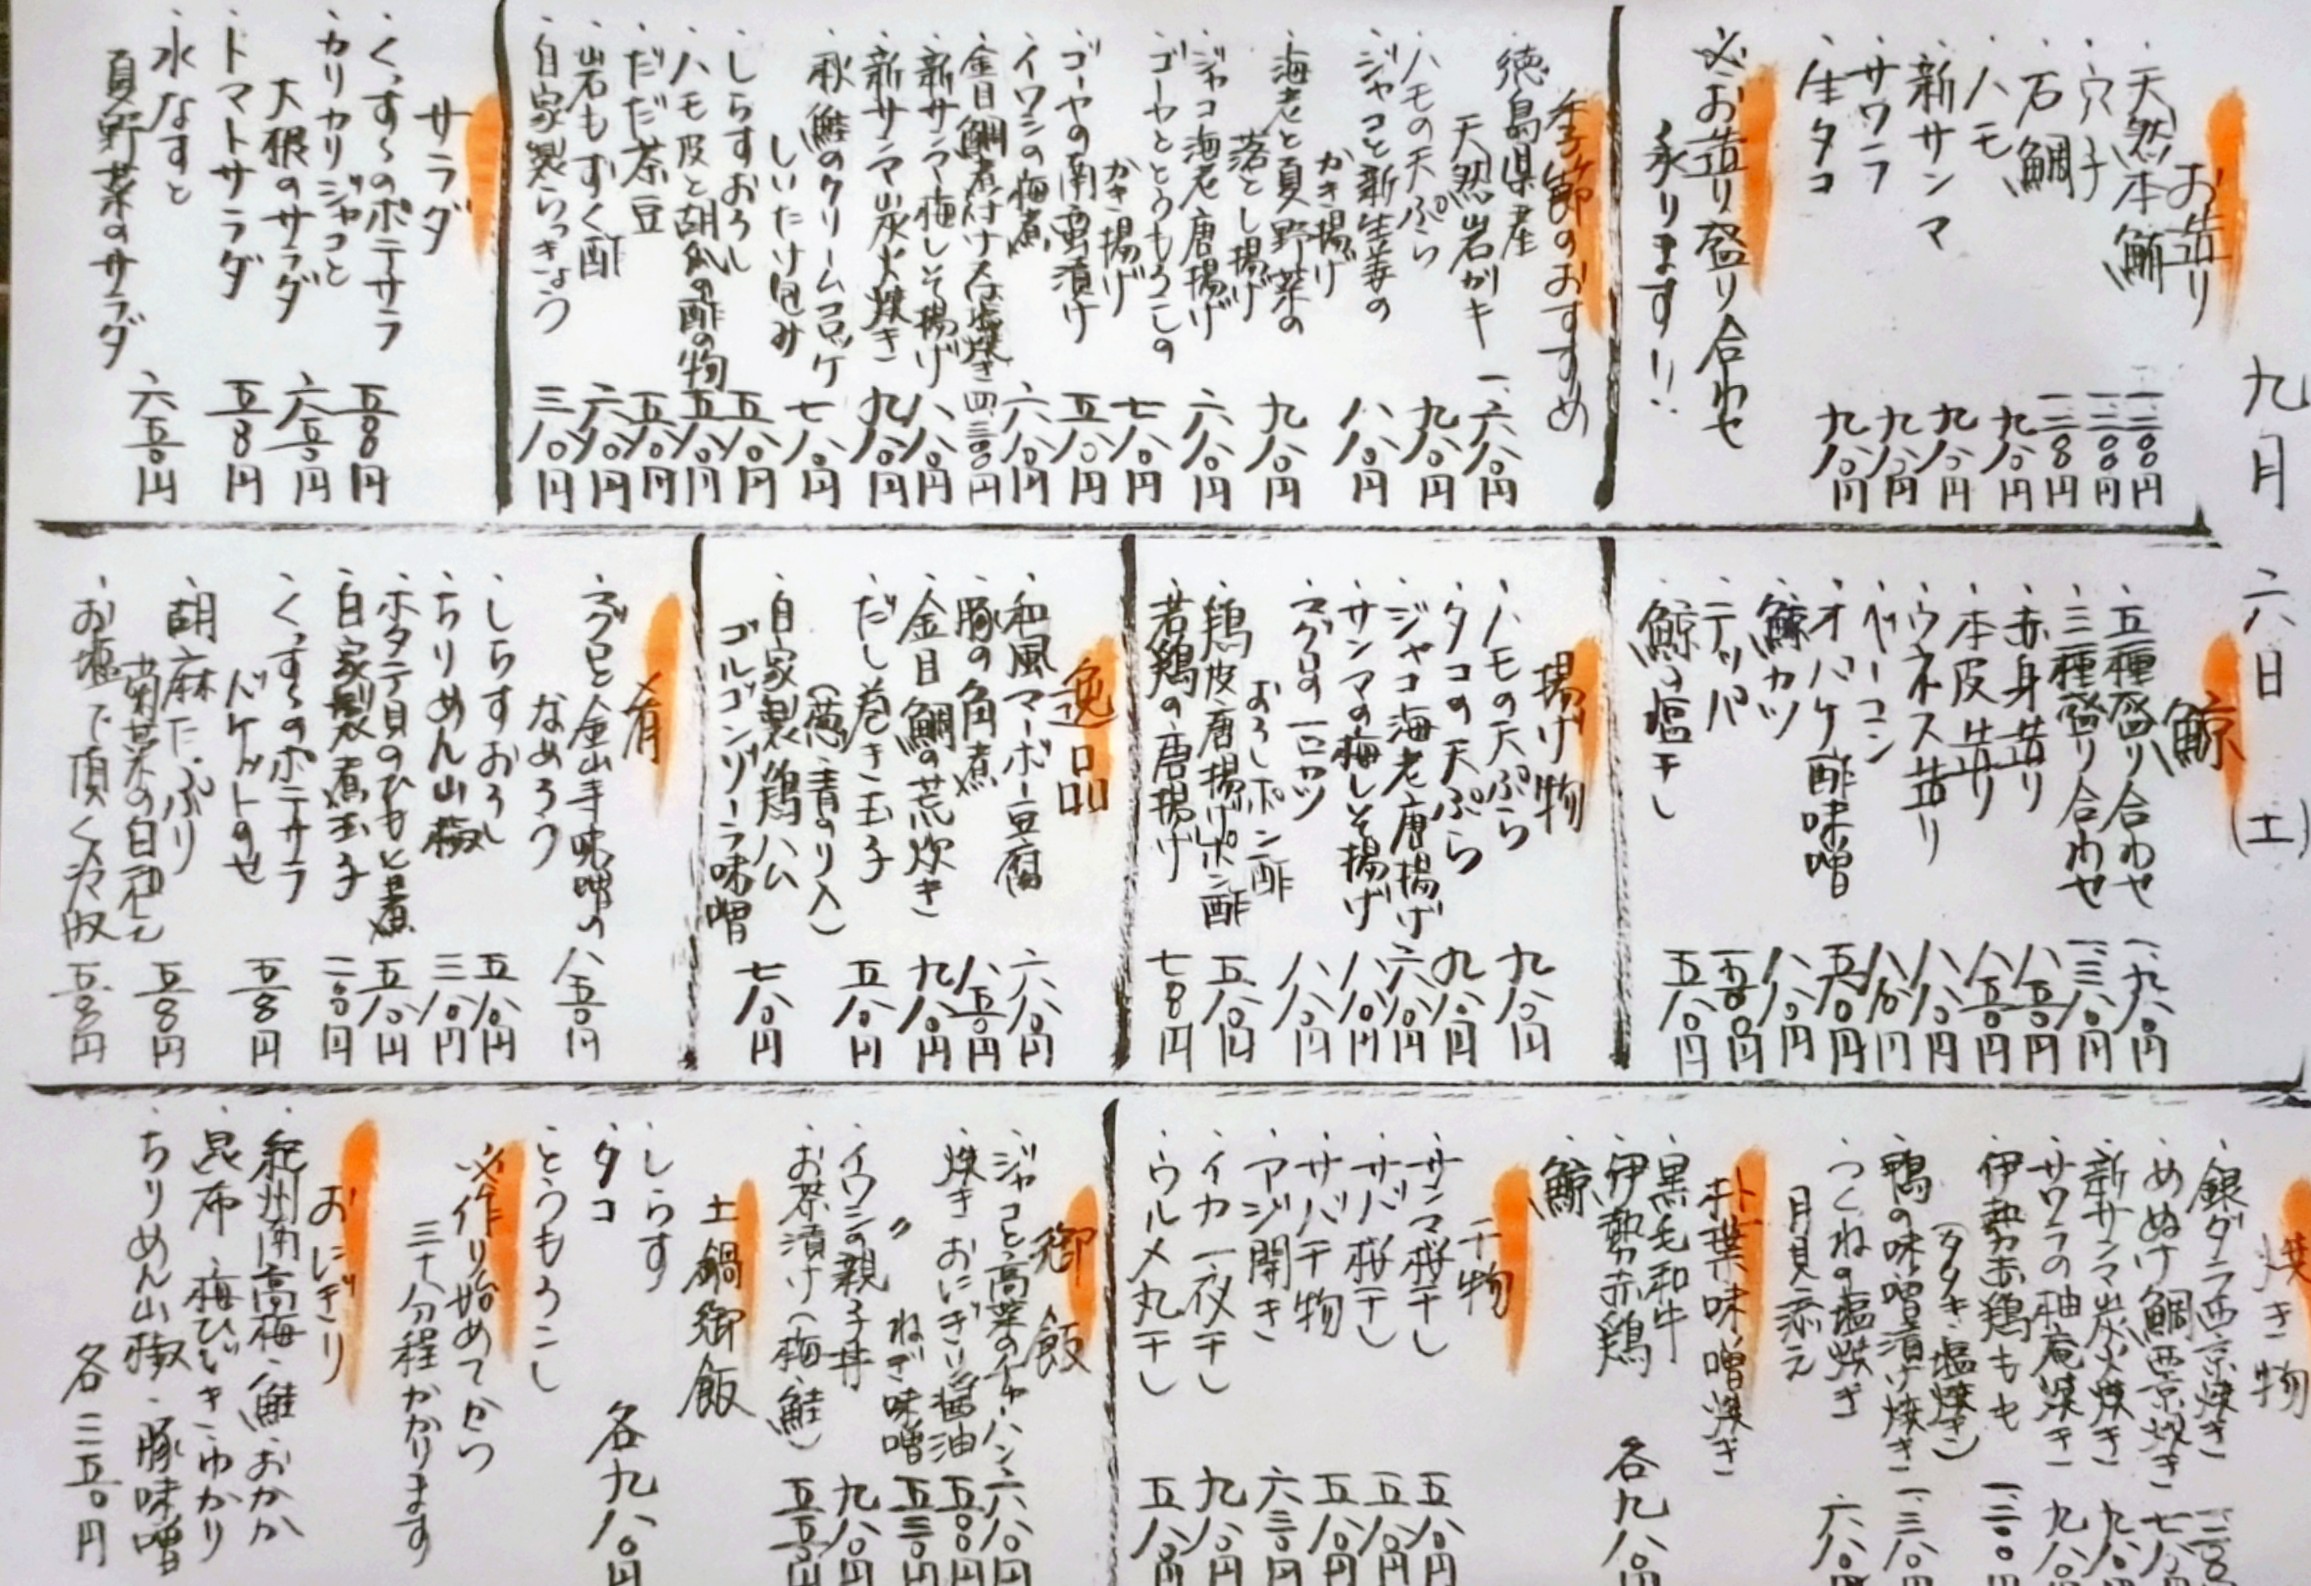 九月 六日 (土)
お造り
・天然本鮪 一、二〇〇円
・穴子 一、二〇〇円
・石鯛 一、二〇〇円
・ハモ 九八〇円
・新サンマ 九八〇円
・サワラ 九八〇円
・生タコ 九八〇円
※お造り盛り合わせ
承ります!!
季節のおすすめ
・徳島県産
天然岩ガキ 一、六八〇円
・ハモの天ぷら 九八〇円
・ジャコと新生姜の
かき揚げ 八八〇円
・海老と夏野菜の
落とし揚げ 九八〇円
・ジャコ海老唐揚げ 六八〇円
・ゴーヤととうもろこしの
かき揚げ 七八〇円
・ゴーヤの南蛮漬け 五八〇円
・イワシの梅煮 六八〇円
・金目鯛煮付け又は塩焼き 四、三〇〇円
・新サンマ梅しそ揚げ 八八〇円
・新サンマ炭火焼き 九八〇円
・秋鮭のクリームコロッケ
しいたけ包み 七八〇円
・しらすおろし 五八〇円
・ハモ皮と胡瓜の酢の物 五八〇円
・だだ茶豆 五八〇円
・岩もずく酢 六八〇円
・自家製らっきょう 三八〇円
サラダ
・くっすぅのポテサラ 五〇〇円
・カリカリジャコと
大根のサラダ 六五〇円
・トマトサラダ 五〇〇円
・水なすと
夏野菜のサラダ 六五〇円
鯨
・五種盛り合わせ 一、九八〇円
・三種盛り合わせ 一、三八〇円
・赤身造り 八五〇円
・本皮造り 八五〇円
・ウネス造り 八八〇円
・ベーコン 八八〇円
・オバケ酢味噌 五五〇円
・鯨カツ 八八〇円
・テッパ 一、五〇〇円
・鯨の塩干し 五八〇円
揚げ物
・ハモの天ぷら 九八〇円
・タコの天ぷら 九八〇円
・ジャコ海老唐揚げ 六八〇円
・サンマの梅しそ揚げ 八八〇円
・マグロの一口カツ
おろしポン酢 八八〇円
・鶏皮唐揚げポン酢 五八〇円
・若鶏の唐揚げ 七〇〇円
逸品
・和風マーボー豆腐 六八〇円
・豚の角煮 八五〇円
・金目鯛の荒炊き 九八〇円
・だし巻き玉子
(葱・青のり入) 五八〇円
・自家製鶏ハム
ゴルゴンゾーラ味噌 七八〇円
肴
・マグロと金山寺味噌の
なめろう 八五〇円
・しらすおろし 五八〇円
・ちりめん山椒 三八〇円
・ホタテ貝のひもと煮 五八〇円
・自家製煮玉子 二〇〇円
・くっすぅのポテサラ
バケットのせ 五〇〇円
・胡麻たっぷり
菊菜の白和え 五〇〇円
・お塩で頂く冷奴 五〇〇円
焼き物
・銀ダラ西京焼き
・めぬけ鯛西京焼き
・新サンマ炭火焼き 九八〇
・サワラの柚庵焼き 九八〇
・伊勢赤鶏もも
(タタキ・塩焼き) 一、二〇〇円
・鴨の味噌漬け焼き 一、三八〇円
・つくねの塩焼き
月見添え 六八〇
朴葉味噌焼き
・黒毛和牛
・伊勢赤鶏
・鯨
各九八〇円
干物
・サンマ桜干し 五八〇円
・サバ桜干し 五八〇円
・サバ干物 五八〇円
・アジ開き 六三〇円
・イカ一夜干し 九八〇円
・ウルメ丸干し 五八〇円
御飯
・ジャコと高菜のチャーハン 六八〇円
・焼きおにぎり 醤油 五〇〇円
・〃 ねぎ味噌 五三〇円
・イワシの親子丼 九八〇円
・お茶漬け(梅・鮭) 五五〇円
土鍋御飯
・しらす
・タコ
・とうもろこし
各九八〇円
※作り始めてから
三十分程かかります
おにぎり
・紀州南高梅・鮭・おかか
・昆布・梅ひじき・ゆかり
・ちりめん山椒・豚味噌
各二五〇円